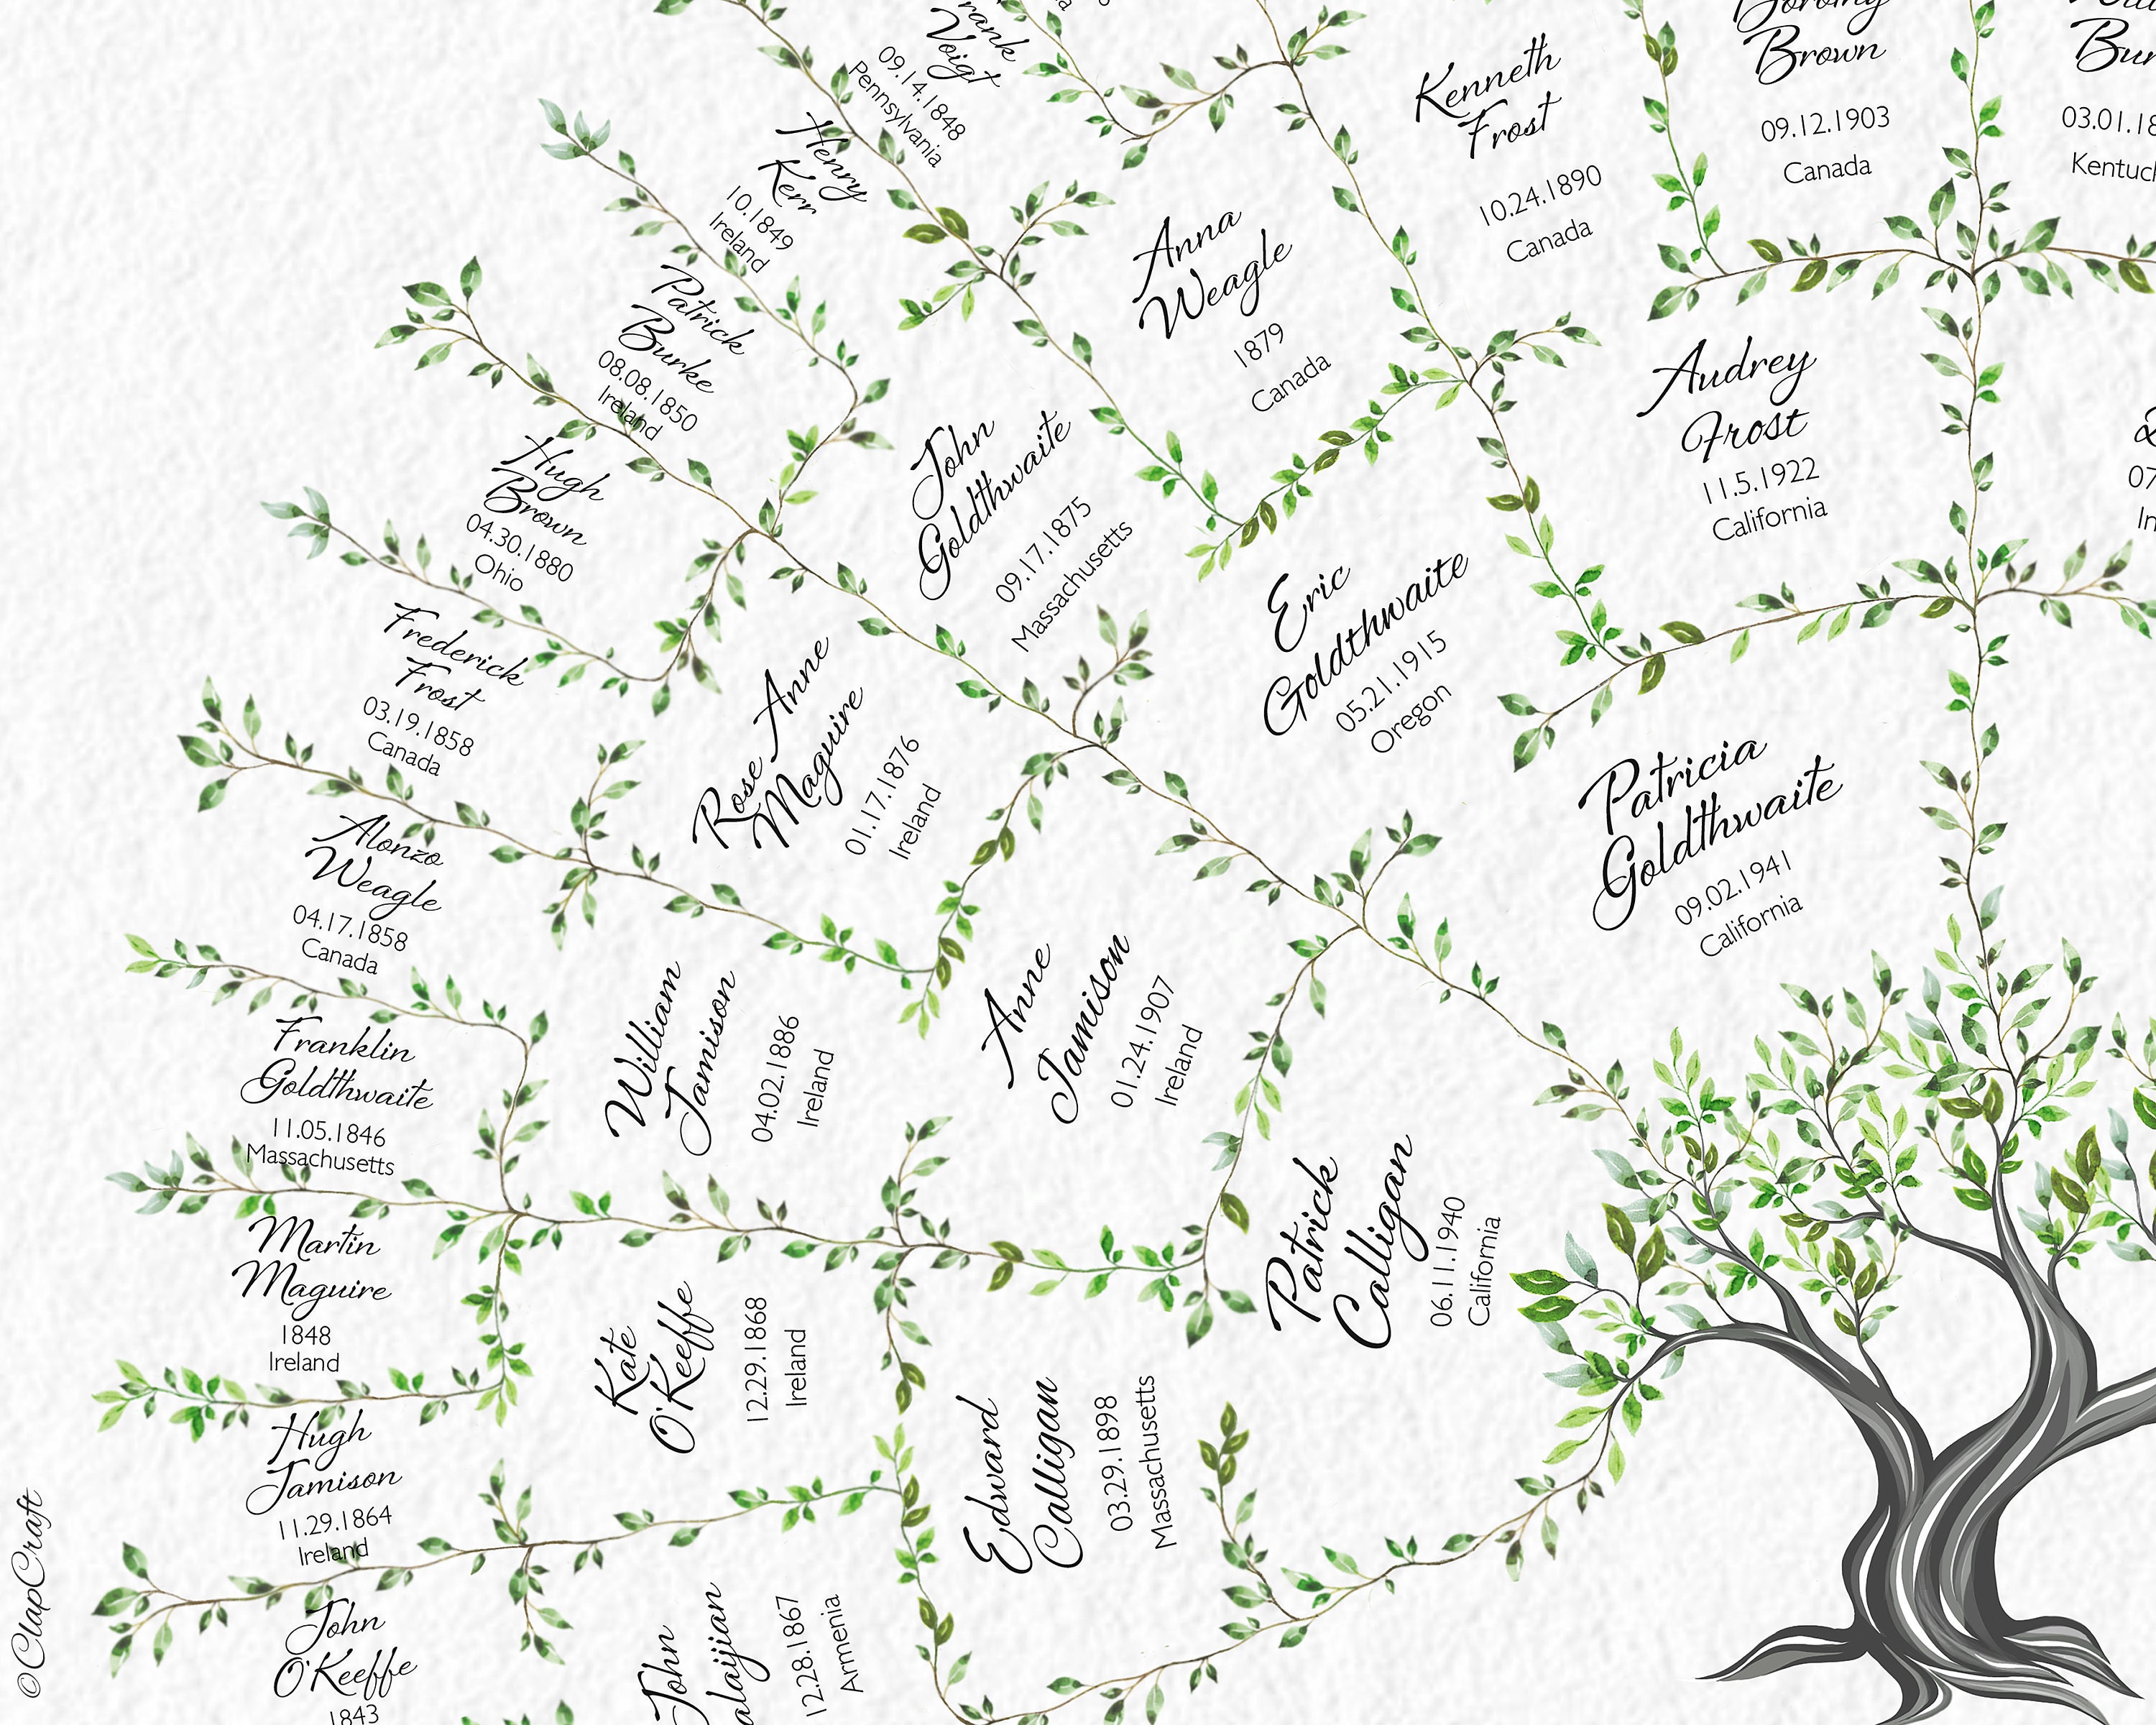 Voigt
09.14.1848
Pennsylvania
Henry
Kerr
10.1849
Ireland
Patrick
Burke
08.08.1850
Ireland
Hugh
Brown
04.30.1880
Ohio
Frederick
Frost
03.19.1858
Canada
Alonzo
Weagle
04.17.1858
Canada
Franklin
Goldthwaite
11.05.1846
Massachusetts
Martin
Maguire
1848
Ireland
Hugh
Jamison
11.29.1864
Ireland
John
O'Keeffe
1843
Kenneth
Frost
10.24.1890
Canada
Anna
Weagle
1879
Canada
John
Goldthwaite
09.17.1875
Massachusetts
Rose Anne
Maguire
01.17.1876
Ireland
William
Jamison
04.02.1886
Ireland
Kate
O'Keeffe
12.29.1868
Ireland
John
alaijian
12.28.1867
Armenia
Brown
09.12.1903
Canada
03.01.18
Kentuc
Audrey
Frost
11.5.1922
California
07
In
Eric
Goldthwaite
05.21.1915
Oregon
Anne
Jamison
01.24.1907
Ireland
Edward
Calligan
03.29.1898
Massachusetts
Patricia
Goldthwaite
09.02.1941
California
Patrick
Calligan
06.11.1940
California
©ClapCraft